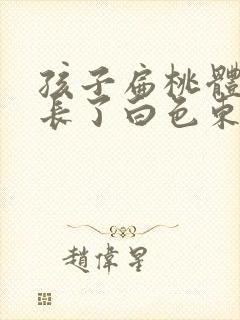 孩子扁桃體
長了白色東
趙偉星